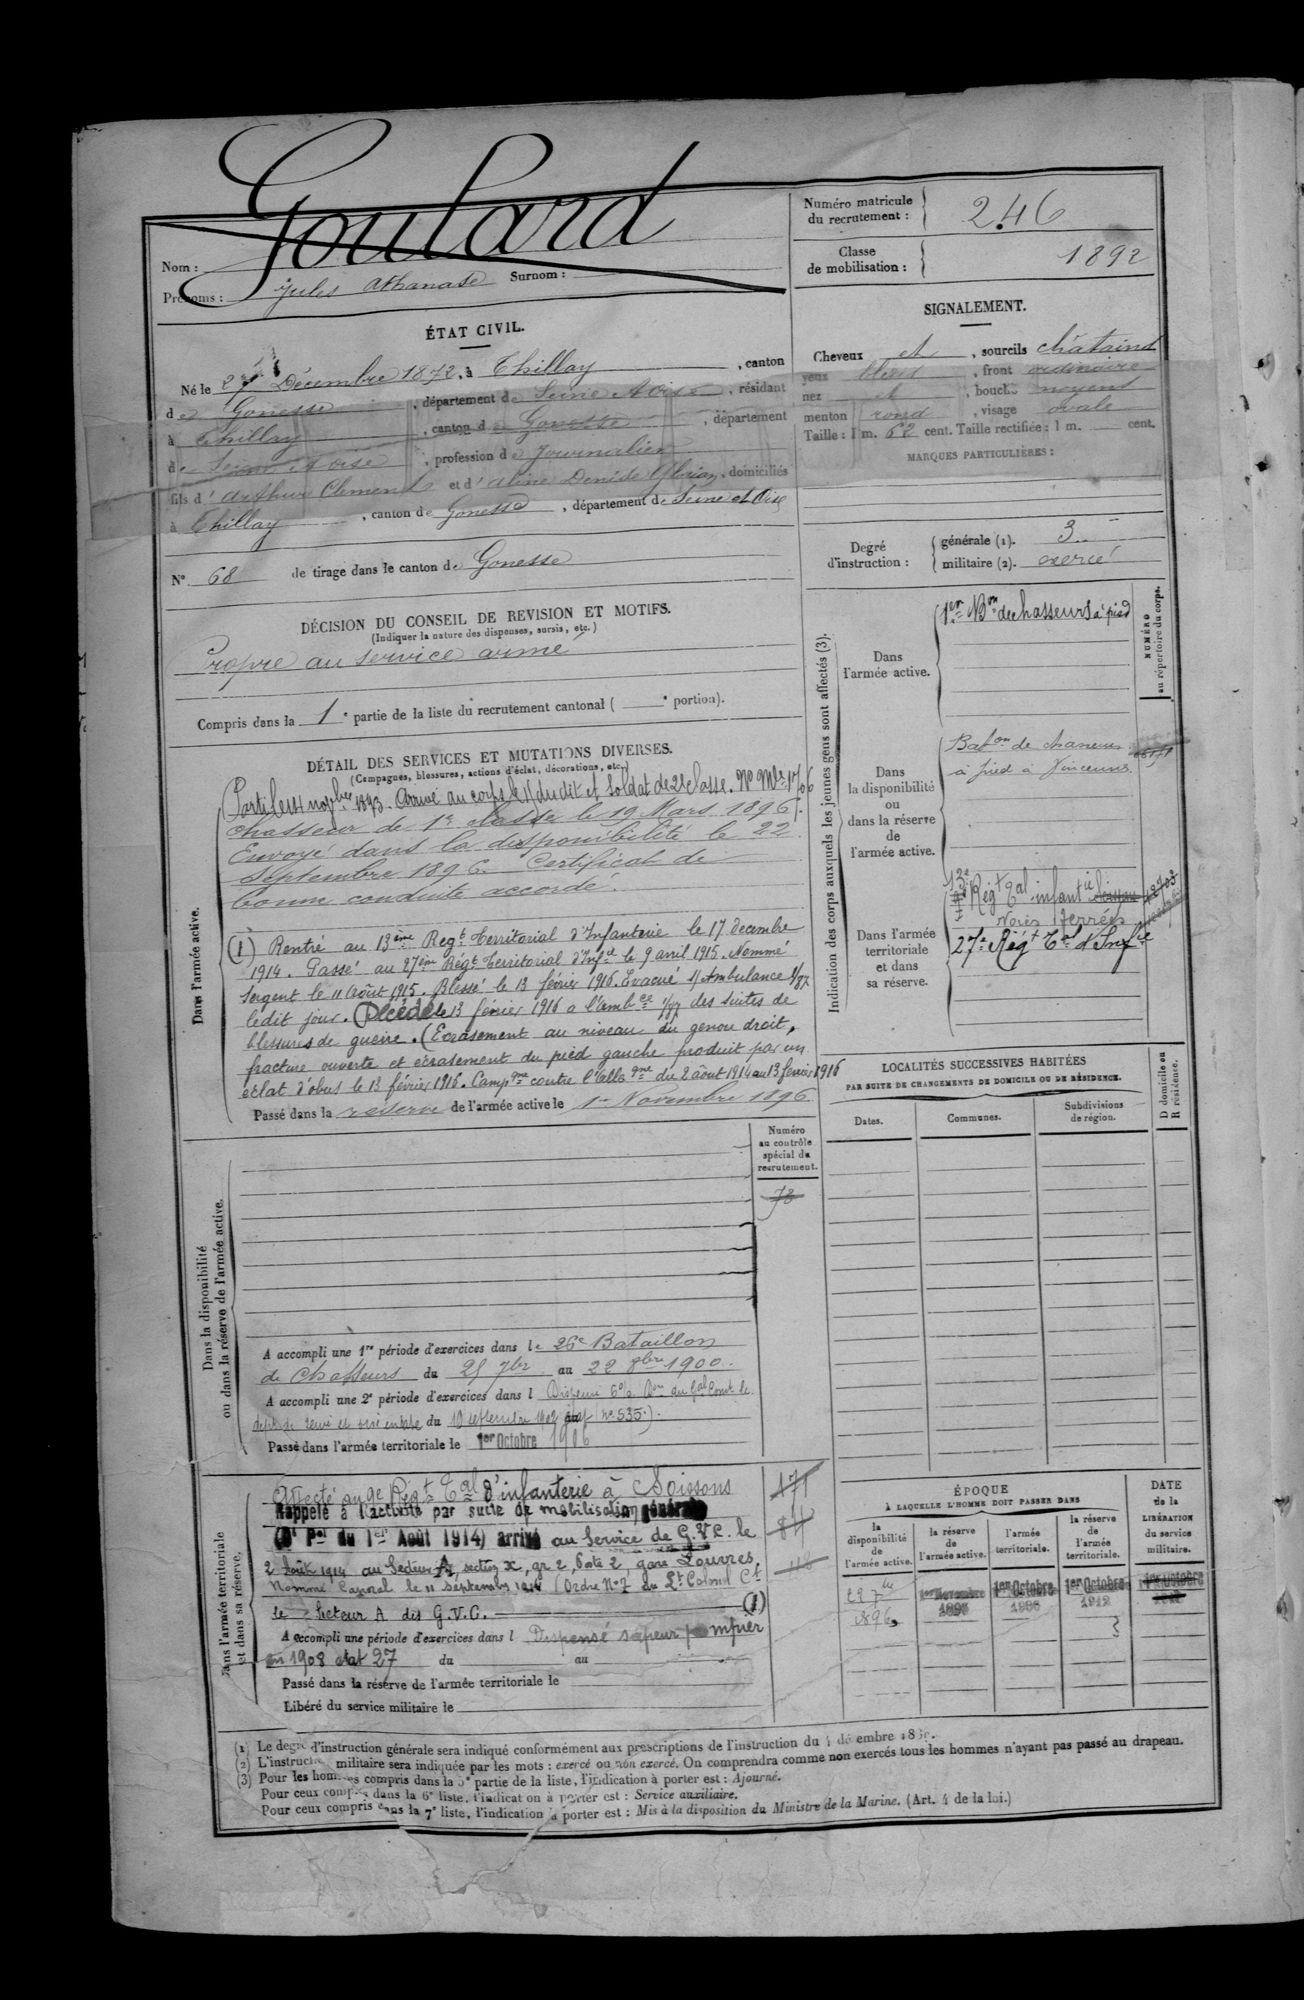 Goulard
Nom :
Prénoms : Jules Athanase Surnom :
Numéro matricule du recrutement : 246
Classe de mobilisation : 1892
ÉTAT CIVIL.
Né le 27 Décembre 1872, à Thillay, canton
de Gonesse, département de Seine et Oise, résidant
à Thillay, canton de Gonesse, département
de Seine et Oise, profession de Journalier
fils d'Arthur Clement et d'Aline Denise, domiciliés
à Thillay, canton de Gonesse, département de Seine et Oise
N° 68 de tirage dans le canton de Gonesse
SIGNALEMENT.
Cheveux et, sourcils châtains
yeux bleus, front ordinaire
nez et, bouche moyens
menton rond, visage ovale
Taille : 1 m. 62 cent. Taille rectifiée : 1 m. cent.
MARQUES PARTICULIÈRES :
Degré d'instruction : générale (1). 3
militaire (2). exercé
DÉCISION DU CONSEIL DE REVISION ET MOTIFS.
(Indiquer la nature des dispenses, sursis, etc.)
Propre au service armé
Compris dans la 1e partie de la liste du recrutement cantonal ( e portion).
DÉTAIL DES SERVICES ET MUTATIONS DIVERSES.
(Campagnes, blessures, actions d'éclat, décorations, etc.)
Dans l'armée active.
Parti le 14 novbre 1893. Arrivé au corps le dudit et soldat de 2e classe. No Mle 1706
Chasseur de 1re classe le 19 Mars 1896.
Envoyé dans la disponibilité le 22
Septembre 1896. Certificat de
bonne conduite accordé.
(1) Rentré au 13ème Regt Territorial d'Infanterie le 17 decembre
1914. Passé au 27ème Régt Territorial d'Infie le 9 avril 1915. Nommé
Sergent le 11 Août 1915. Blessé le 13 février 1916. Evacué s/ Ambulance 1/87
ledit jour. Décédé le 13 février 1916 a l'ambce 1/87 des suites de
blessures de guerre. (Ecrasement au niveau du genou droit,
fracture ouverte et écrasement du pied gauche produit par un
éclat d'obus le 13 février 1916. Campgne contre l'Allegne du 2 août 1914 au 13 février 1916
Passé dans la réserve de l'armée active le 1er Novembre 1896.
Indication des corps auxquels les jeunes gens sont affectés (3).
NUMÉRO au répertoire du corps.
Dans l'armée active.
1er Bon de chasseurs à pied
Dans la disponibilité ou dans la réserve de l'armée active.
Baton de chasseurs
à pied à Vincennes.
Dans l'armée territoriale et dans sa réserve.
13e Régt Tal infantie Soissons 12703
Voies ferrées
27e Régt Tal d'Infie
LOCALITÉS SUCCESSIVES HABITÉES
PAR SUITE DE CHANGEMENTS DE DOMICILE OU DE RÉSIDENCE.
Dates. Communes. Subdivisions de région. D domicile ou R résidence.
Dans la disponibilité ou dans la réserve de l'armée active.
Numéro au contrôle spécial du recrutement.
73
A accompli une 1re période d'exercices dans le 26e Bataillon
de Chasseurs du 25 7bre au 22 8bre 1900.
A accompli une 2e période d'exercices dans l Dispensé
du 10 septembre 1902 (no 535).
Passé dans l'armée territoriale le 1er Octobre 1906
Dans l'armée territoriale et dans sa réserve.
Affecté au 9e Régt Tal d'infanterie à Soissons 171
Rappelé à l'activité par suite de mobilisation générale
(Dt Pel du 1er Août 1914) arrivé au Service de G.V.C. le
2 Août 1914 au Secteur A, section X, gr 2, Poste 2 gare Louvres.
Nommé Caporal le 11 septembre 1914 (Ordre No 7 du Lt Colonel Ct
le Secteur A des G.V.C. (1)
A accompli une période d'exercices dans l Dispensé sapeur pompier
en 1908 état 27 du au
Passé dans la réserve de l'armée territoriale le
Libéré du service militaire le
ÉPOQUE
À LAQUELLE L'HOMME DOIT PASSER DANS
DATE de la LIBÉRATION du service militaire.
la disponibilité de l'armée active. la réserve de l'armée active. l'armée territoriale. la réserve de l'armée territoriale.
22 7bre 1896 1er Novembre 1896 1er Octobre 1906 1er Octobre 1912 1er Octobre
(1) Le degré d'instruction générale sera indiqué conformément aux prescriptions de l'instruction du 4 décembre
(2) L'instruction militaire sera indiquée par les mots : exercé ou non exercé. On comprendra comme non exercés tous les hommes n'ayant pas passé au drapeau.
(3) Pour les hommes compris dans la 5e partie de la liste, l'indication à porter est : Ajourné.
Pour ceux compris dans la 6e liste, l'indication à porter est : Service auxiliaire.
Pour ceux compris dans la 7e liste, l'indication à porter est : Mis à la disposition du Ministre de la Marine. (Art. 4 de la loi.)